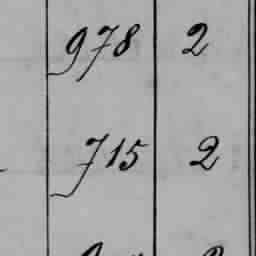 978 2
715 2